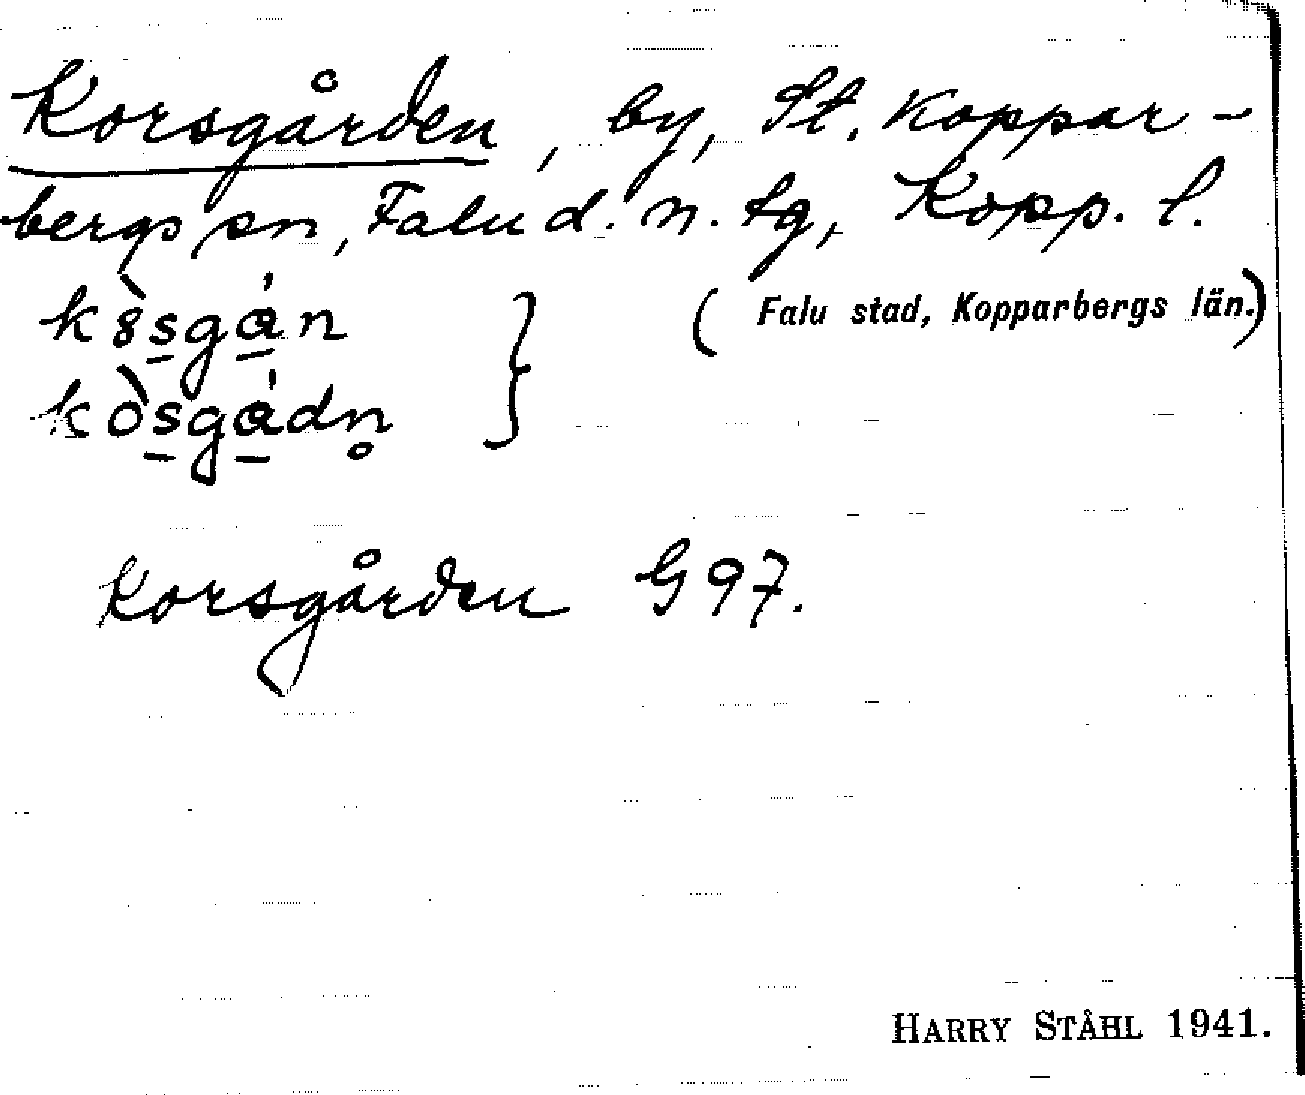 Korsgården, by, St. Koppar-
bergs sn, Falu d. n. tg, Kopp. l.
kòsgá̱n } ( Falu stad, Kopparbergs län.)
kòsgá̱dn̥
Korsgården G 97.
HARRY STÅHL 1941.